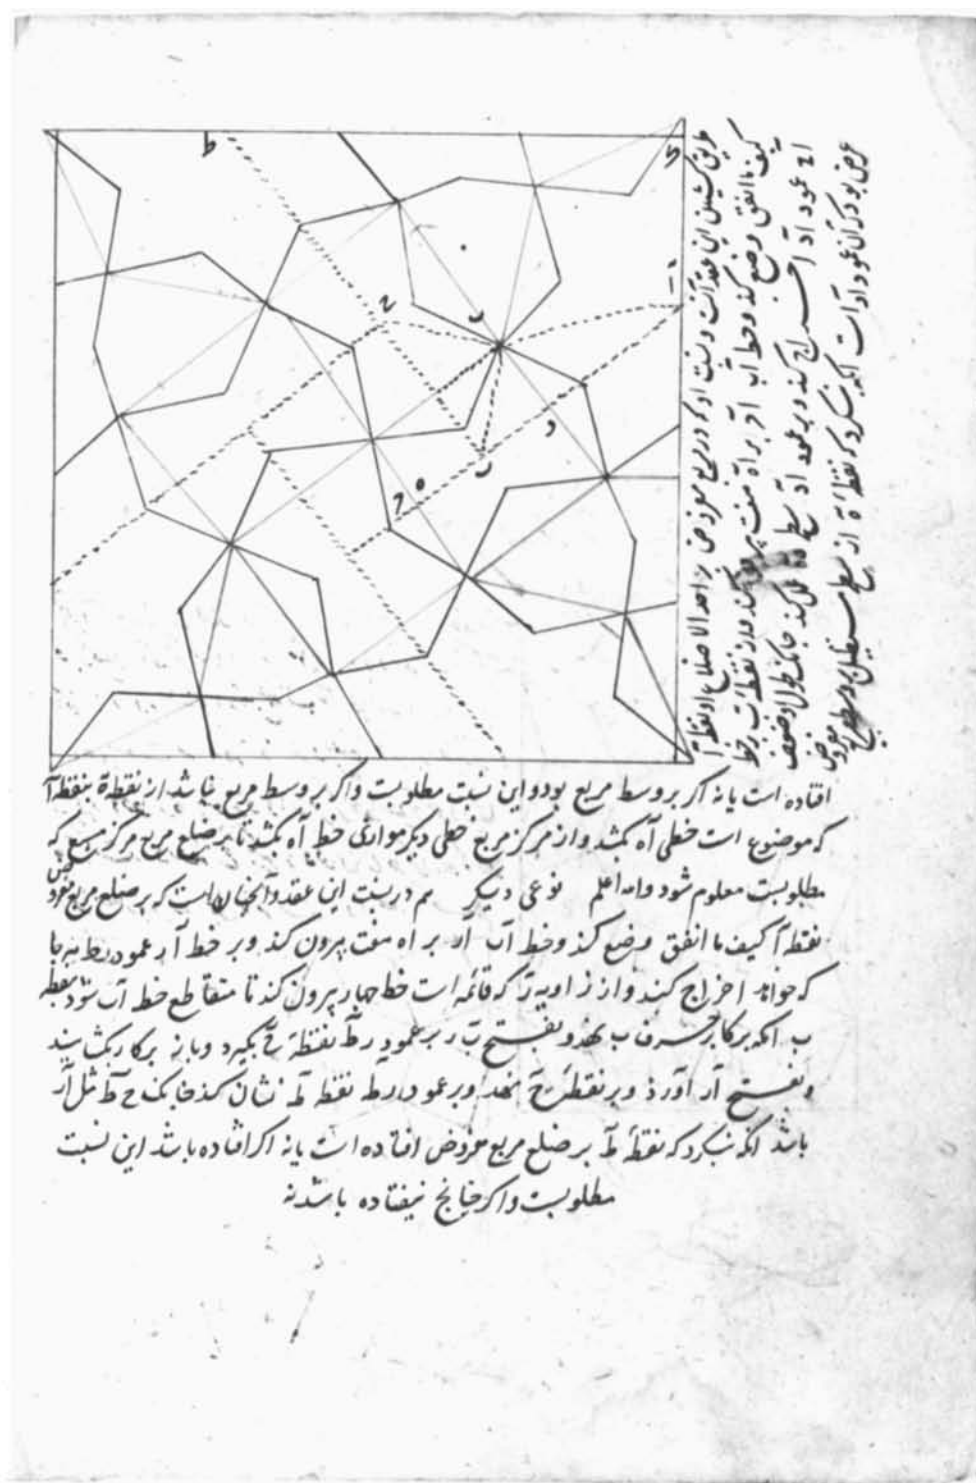 طریق کشیدن این عقد آنست و نسبت او که در مربع مفروض بر احد الاضلاع او نقطه آ
کیف ما اتفق وضع کند و خط آب آد بر اه هفت بیرون کند و از نقطه ب بر خط
اع عمود اد اخراج کند و بر عمود اد سطح کند چنانک طول او ضعف
عرض بود و آن عمود اد است انکه بنگرد که نقطهٔ ه از سطح مستطیل بر وسط مربع مفروض
افتاده است یا نه اکر بر وسط مربع بود و این نسبت مطلوبست و اکر بر وسط مربع نباشد از نقطهٔ ه بنقطه آ
که موضوع است خطی آه کشد و از مرکز مربع خطی دیکر موازی خط آه کشد تا بر ضلع مربع مرکز مربع که
مطلوبست معلوم شود والله اعلم نوعی دیکر هم در نسبت این عقد و آنچنان است که بر ضلع مربع مفروض
نقطه آ کیف ما اتفق وضع کند و خط آب آر بر اه هفت بیرون کند و بر خط آر عمود رط بهر جا
که خواهد اخراج کند و از زاویه ر که قائمه است خط چهار بیرون کند تا متقاطع خط آب شود بنقطه
ب انکه برکار بر حرف ب نهد و بفتح ب ر بر عمود رط نقطه ح بگیرد و باز برکار بگشایند
و بفتح آر آورد و بر نقطه ح نهد و بر عمود رط نقطه ط نشان کند چنانک ح ط مثل آر
باشد انکه بنگرد که نقطه ط بر ضلع مربع مفروض افتاده است یا نه اکر افتاده باشد این نسبت
مطلوبست و اکر چنانچ نیفتاده باشد نه